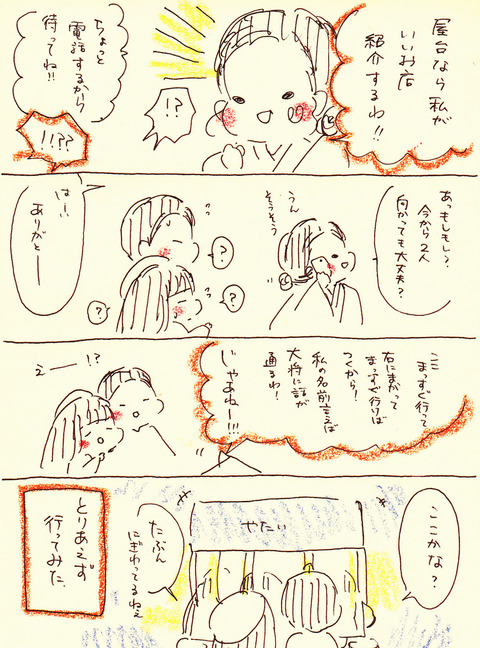 屋台なら私が
いいお店
紹介するわ!!
!?
ちょっと
電話するから
待ってね!!
!!??
あっもしもし?
今から2人
向かっても大丈夫?
うん
そうそう
?
?
?
はーい
ありがとー
ここ
まっすぐ行って
右にまがって
まっすぐ行けば
つくから!
私の名前言えば
大将に話が
通るわ!
じゃあねー!!!
!?
えー
ここかな?
やたい
たぶん
にぎわってるねぇ
とりあえず
行ってみた